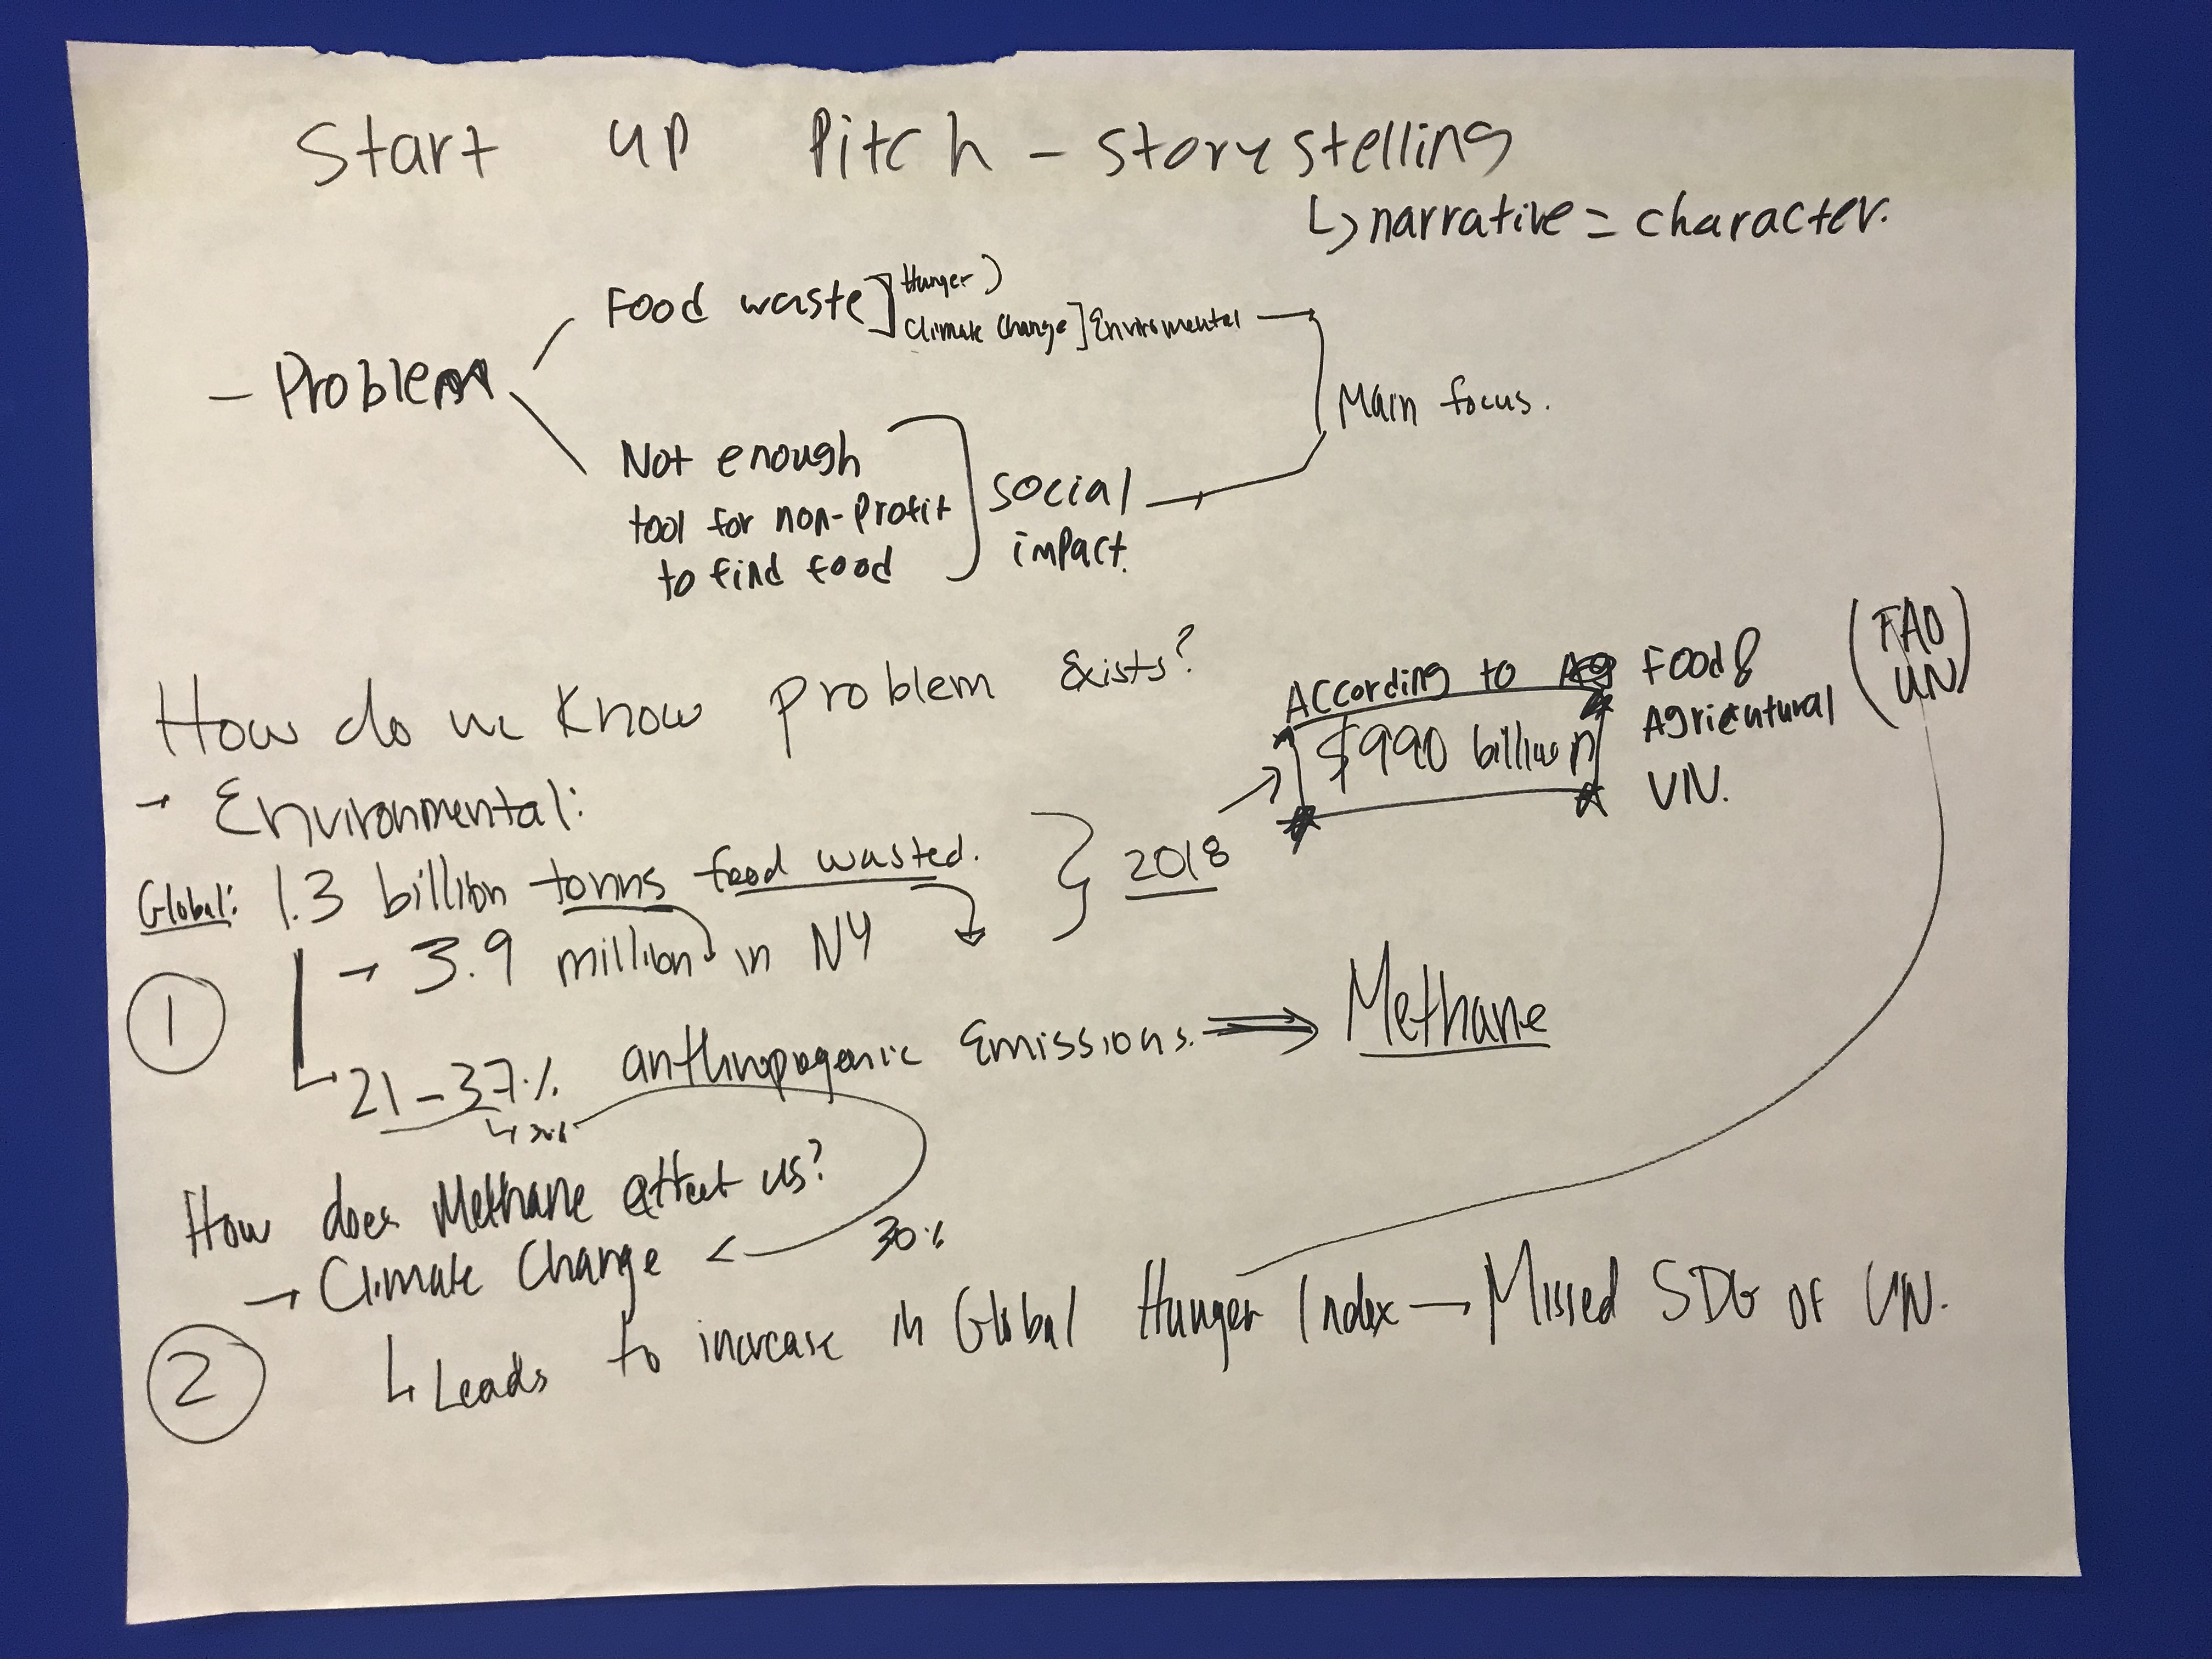 Start up Pitch - storystelling
↳ narrative = character.
Food waste ] Hunger )
Climate Change ] Enviromental →
- Problem
Main focus.
Not enough
tool for non-profit
to find food
social →
impact.
How do we know problem exists?
According to Food &
Agricultural
UN.
(FAO
UN)
$990 billion
→ Environmental:
Global: 1.3 billion tonns food wasted.
2018
→ 3.9 million in NY
1
21-37% anthropogenic Emissions. ⇒ Methane
How does Methane affect us?
→ Climate Change <
30%
2
↳ Leads to increase in Global Hunger Index → Missed SDG of UN.